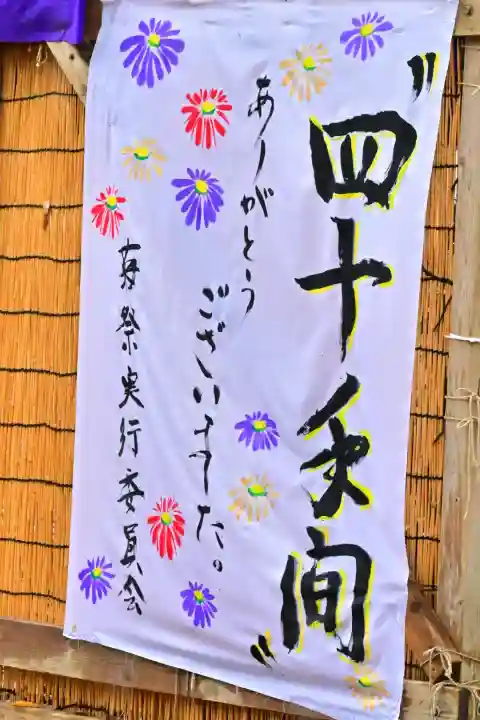 〝四十年間〟
ありがとう
ございました。
祭実行委員会